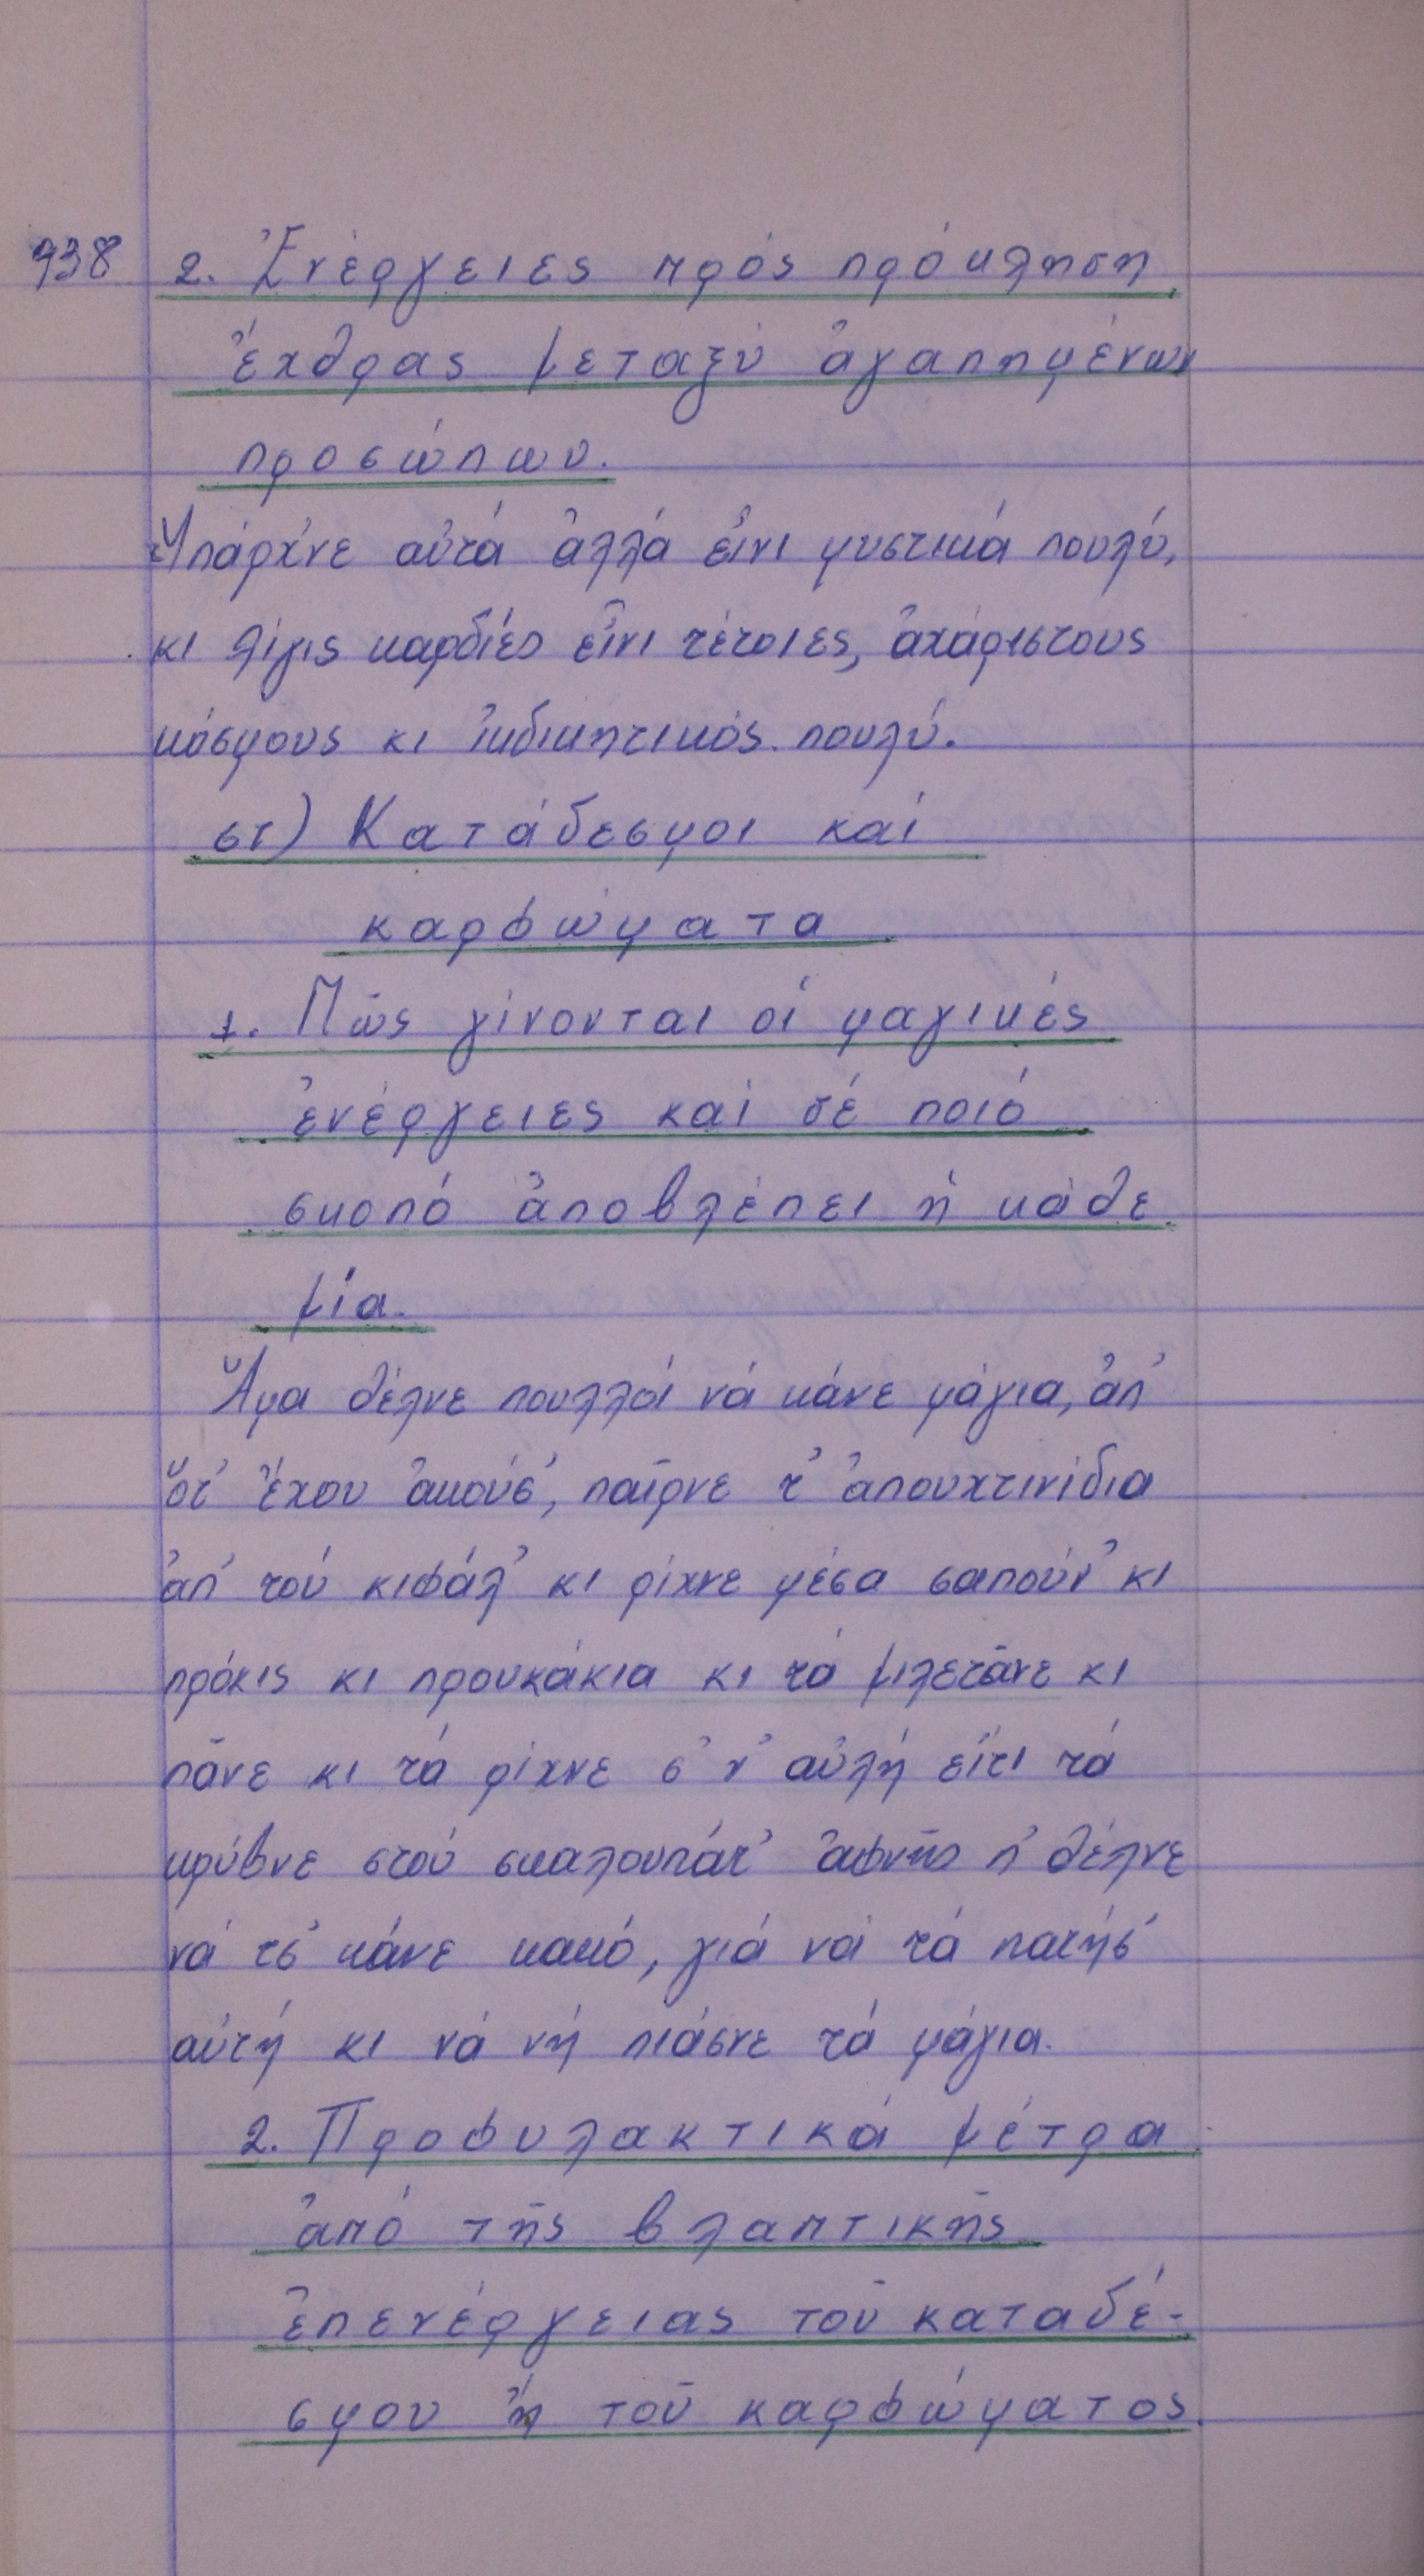 938
2. Ἐνέργειες πρός πρόκληση
ἔχθρας μεταξύ ἀγαπημένων
προσώπων.
Ὑπάρχνε αὐτά ἀλλά εἶνι μυστικά πουλύ,
κι λίγις καρδιές εἶνι τέτοιες, ἀχάριστους
κόσμους κι ἰκδικητικός πουλύ.
στ) Κατάδεσμοι καί
καρφώματα
1. Πῶς γίνονται οἱ μαγικές
ἐνέργειες καί σέ ποιό
σκοπό ἀποβλέπει ἡ κάθε
μία.
Ἅμα θέλνε πουλλοί νά κάνε μάγια, ἀπ'
ὅτ' ἔχου ἀκούσ', παῖρνε τ' ἀπουχτινίδια
ἀπ' τού κιφάλ' κι ρίχνε μέσα σαπούν' κι
πρόκις κι προυκάκια κι τά μιλετᾶνε κι
πᾶνε κι τά ρίχνε σ' ν' αὐλή εἴτι τά
κρύβνε στού σκαλουπάτ' ἀφνῆς π' θέλνε
νά τσ' κάνε κακό, γιά νά τά πατήσ'
αὐτή κι νά νή πιάσνε τά μάγια.
2. Προφυλακτικά μέτρα
ἀπό τῆς βλαπτικῆς
ἐπενέργειας τοῦ καταδέ-
σμου ἤ τοῦ καρφώματος.